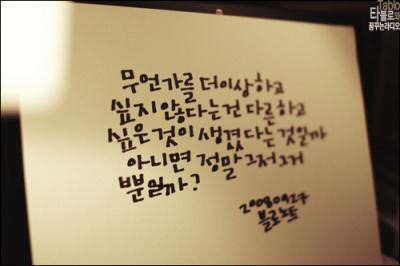 Tablo
타블로와
꿈꾸는라디오
무언가를 더이상 하고
싶지 않다는건 다른 하고
싶은 것이 생겼다는 것일까
아니면 정말 그저 그거
뿐일까?
20080927
블로노트